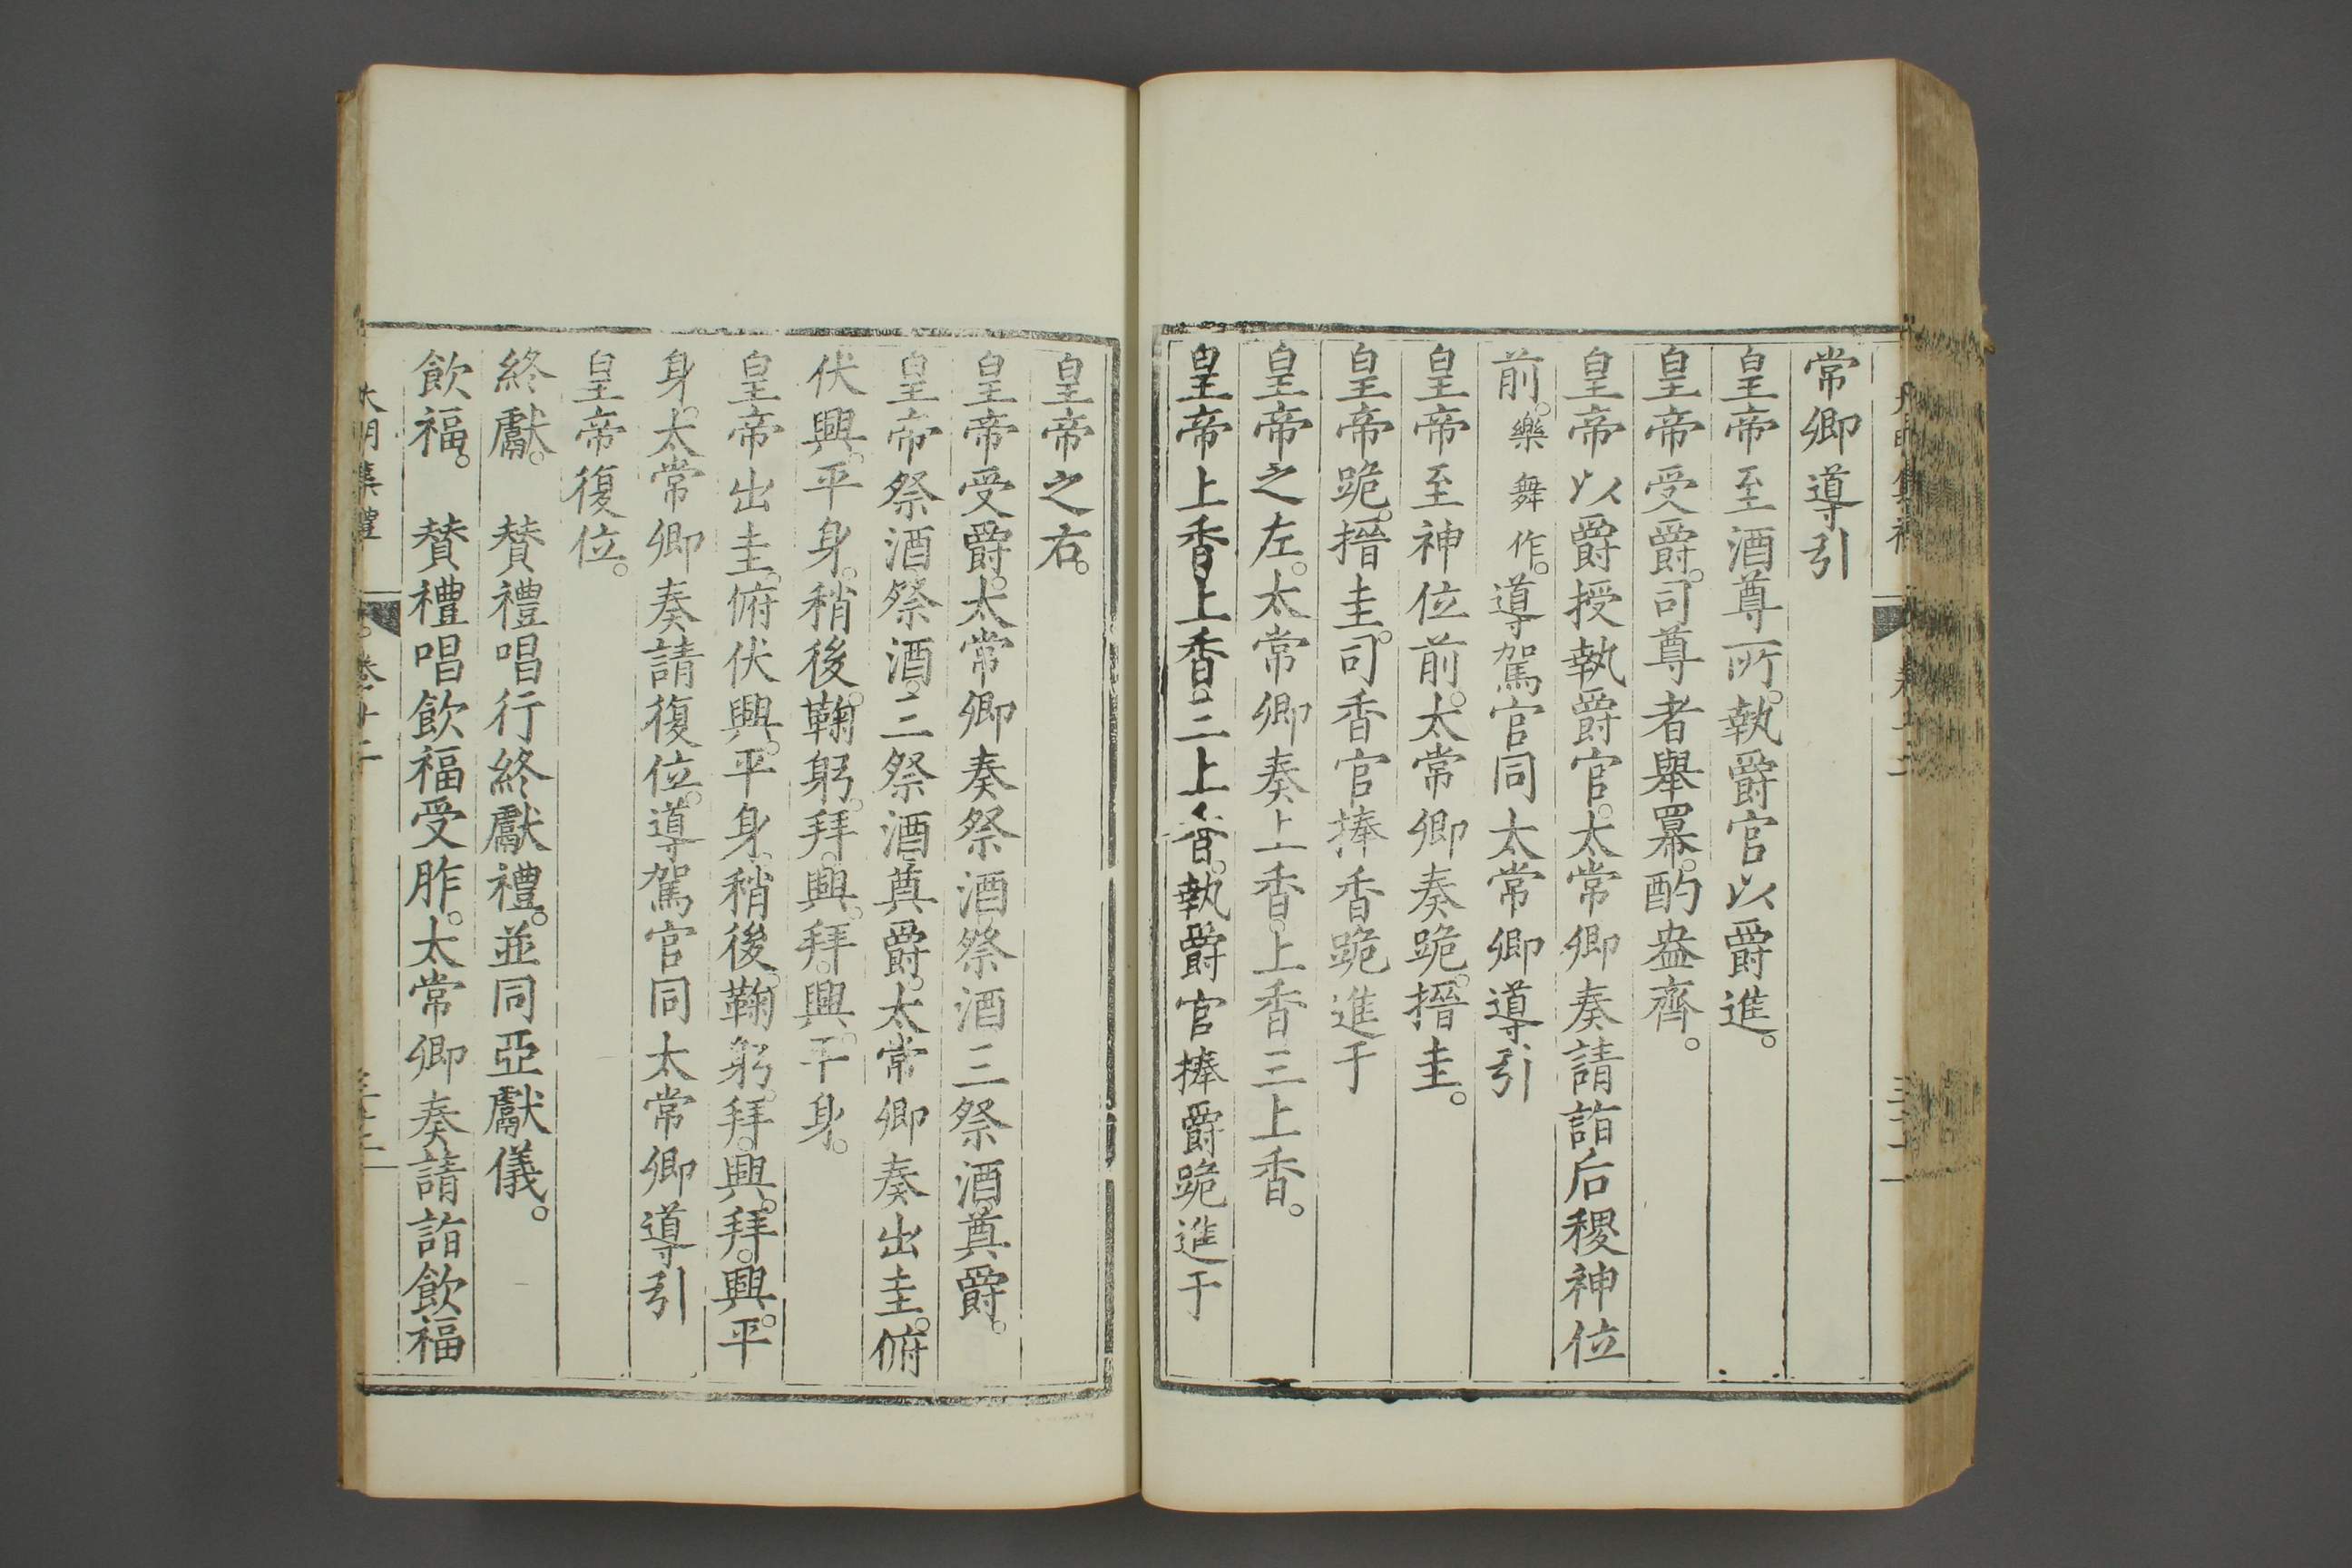 常卿導引
皇帝至酒尊所。執爵官以爵進。
皇帝受爵。司尊者舉冪。酌盎齊。
皇帝以爵授執爵官。太常卿奏請詣后稷神位
前。樂舞作。導駕官同太常卿導引
皇帝至神位前。太常卿奏跪。搢圭。
皇帝跪。搢圭。司香官捧香跪進于
皇帝之左。太常卿奏上香。上香三上香。
皇帝上香上香三上香。執爵官捧爵跪進于
皇帝之右。
皇帝受爵。太常卿奏祭酒祭酒三祭酒。奠爵。
皇帝祭酒祭酒。三祭酒奠爵。太常卿奏出圭。俯
伏興。平身。稍後。鞠躬。拜。興。拜。興。平身。
皇帝出圭。俯伏興。平身。稍後。鞠躬。拜。興。拜。興。平
身。太常卿奏請復位。導駕官同太常卿導引
皇帝復位。
終獻。 贊禮唱行終獻禮。並同亞獻儀。
飲福。 贊禮唱飲福受胙。太常卿奏請詣飲福
大明集禮 卷十二